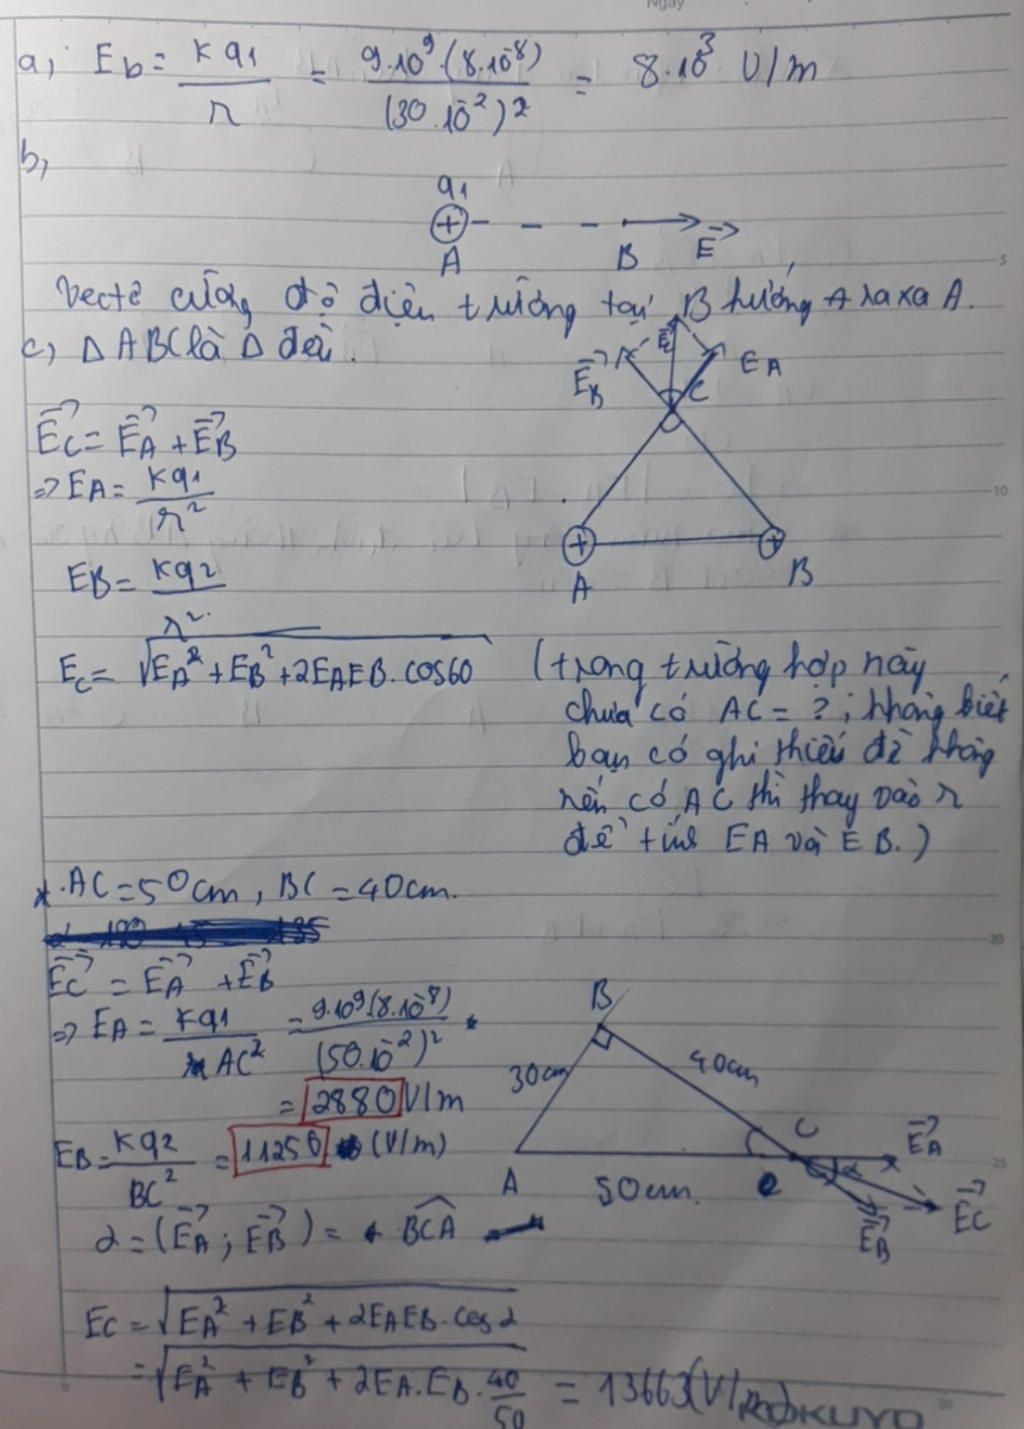 Ngày
a, Eb = kq1 / r = 9.10⁹.(8.10⁻⁸) / (30.10⁻²)² = 8.10³ V/m
b,
q1
+ A B E⃗
Vectơ cường độ điện trường tại B hướng ra xa A.
c, Δ ABC là Δ đều.
E⃗B E⃗ C EA
E⃗C = E⃗A + E⃗B
=> EA = kq1 / r²
EB = kq2 / r²
+ A + B
EC = √(EA² + EB² + 2EAEB.cos60) (trong trường hợp này
chưa có AC = ?; không biết
bạn có ghi thiếu đề không
nến có AC thì thay vào r
để tính EA và EB.)
* .AC = 50cm, BC = 40cm.
E⃗C = E⃗A + E⃗B
=> EA = kq1 / AC² = 9.10⁹.(8.10⁻⁸) / (50.10⁻²)²
= 2880 V/m
EB = kq2 / BC² = 11250 (V/m)
B
30cm 40cm
A 50cm C α E⃗A
E⃗B E⃗C
α = (E⃗A; E⃗B) = BCA
EC = √(EA² + EB² + 2EAEB.cosα)
= √(EA² + EB² + 2EA.EB.40/50) = 13663(V/m)
KOKUYO
5
10
20
25